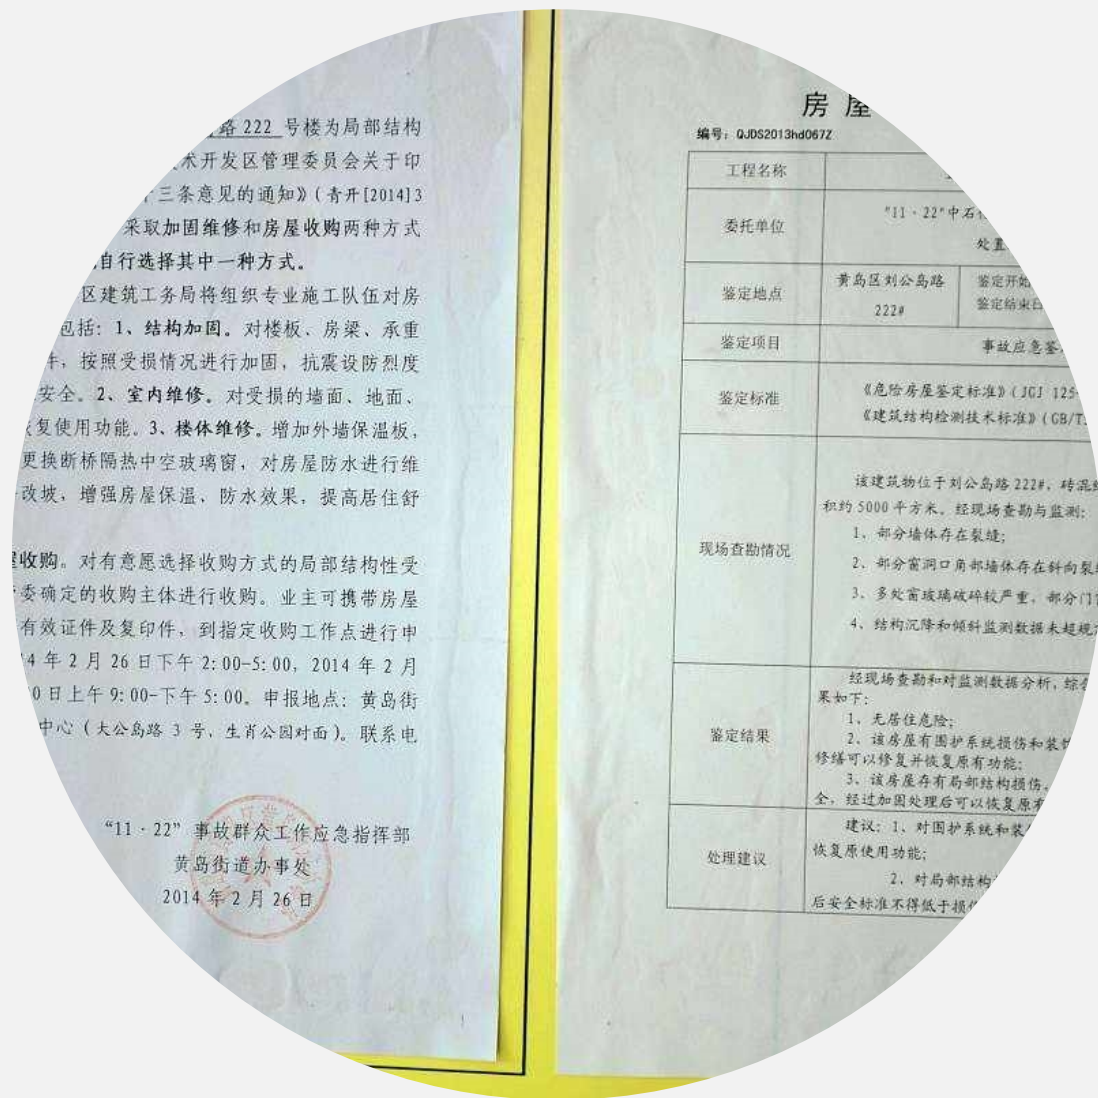 路 222 号楼为局部结构
术开发区管理委员会关于印
三条意见的通知》（青开[2014]3
采取加固维修和房屋收购两种方式
自行选择其中一种方式。
区建筑工务局将组织专业施工队伍对房
包括：1、结构加固。对楼板、房梁、承重
件，按照受损情况进行加固，抗震设防烈度
安全。2、室内维修。对受损的墙面、地面、
复使用功能。3、楼体维修。增加外墙保温板，
更换断桥隔热中空玻璃窗，对房屋防水进行维
改坡，增强房屋保温、防水效果，提高居住舒
收购。对有意愿选择收购方式的局部结构性受
委确定的收购主体进行收购。业主可携带房屋
有效证件及复印件，到指定收购工作点进行申
4 年 2 月 26 日下午 2:00-5:00，2014 年 2 月
0 日上午 9:00-下午 5:00。申报地点：黄岛街
中心（大公岛路 3 号，生肖公园对面）。联系电
“11·22”事故群众工作应急指挥部
黄岛街道办事处
2014 年 2 月 26 日
房 屋
编号：QJDS2013hd067Z
工程名称
委托单位 "11·22"中石
处置
鉴定地点 黄岛区刘公岛路 222# 鉴定开始
鉴定结束日
鉴定项目 事故应急鉴
鉴定标准 《危险房屋鉴定标准》（JGJ 125
《建筑结构检测技术标准》（GB/T
现场查勘情况
该建筑物位于刘公岛路 222#，砖混
积约 5000 平方米。经现场查勘与监测：
1、部分墙体存在裂缝；
2、部分窗洞口角部墙体存在斜向裂
3、多处窗玻璃破碎较严重，部分门
4、结构沉降和倾斜监测数据未超规
鉴定结果
经现场查勘和对监测数据分析，综
果如下：
1、无居住危险；
2、该房屋有围护系统损伤和装
修缮可以修复并恢复原有功能；
3、该房屋存有局部结构损伤，
全，经过加固处理后可以恢复原
处理建议
建议：1、对围护系统和装
恢复原使用功能；
2、对局部结构
后安全标准不得低于损